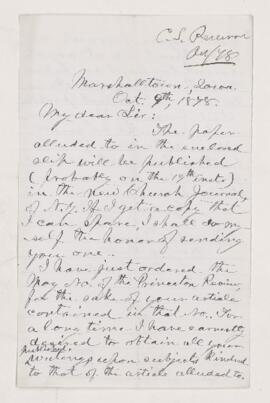 C. S.
Oct/78
Marshalltown, Iowa.
Oct. 9th, 1878.
My dear Sir:
The paper
alluded to in the enclosed
slip will be published
(probably on the 19th inst.)
in the New Church Journal,
of N.Y. If I get a copy that
I can spare, I shall do my-
self the honor of sending
you one.
I have just ordered the
May No. of the Princeton Review,
for the sake of your article
contained in that No. For
a long time I have earnestly
desired to obtain all your
published
writings upon subjects kindred
to that of the article alluded to.